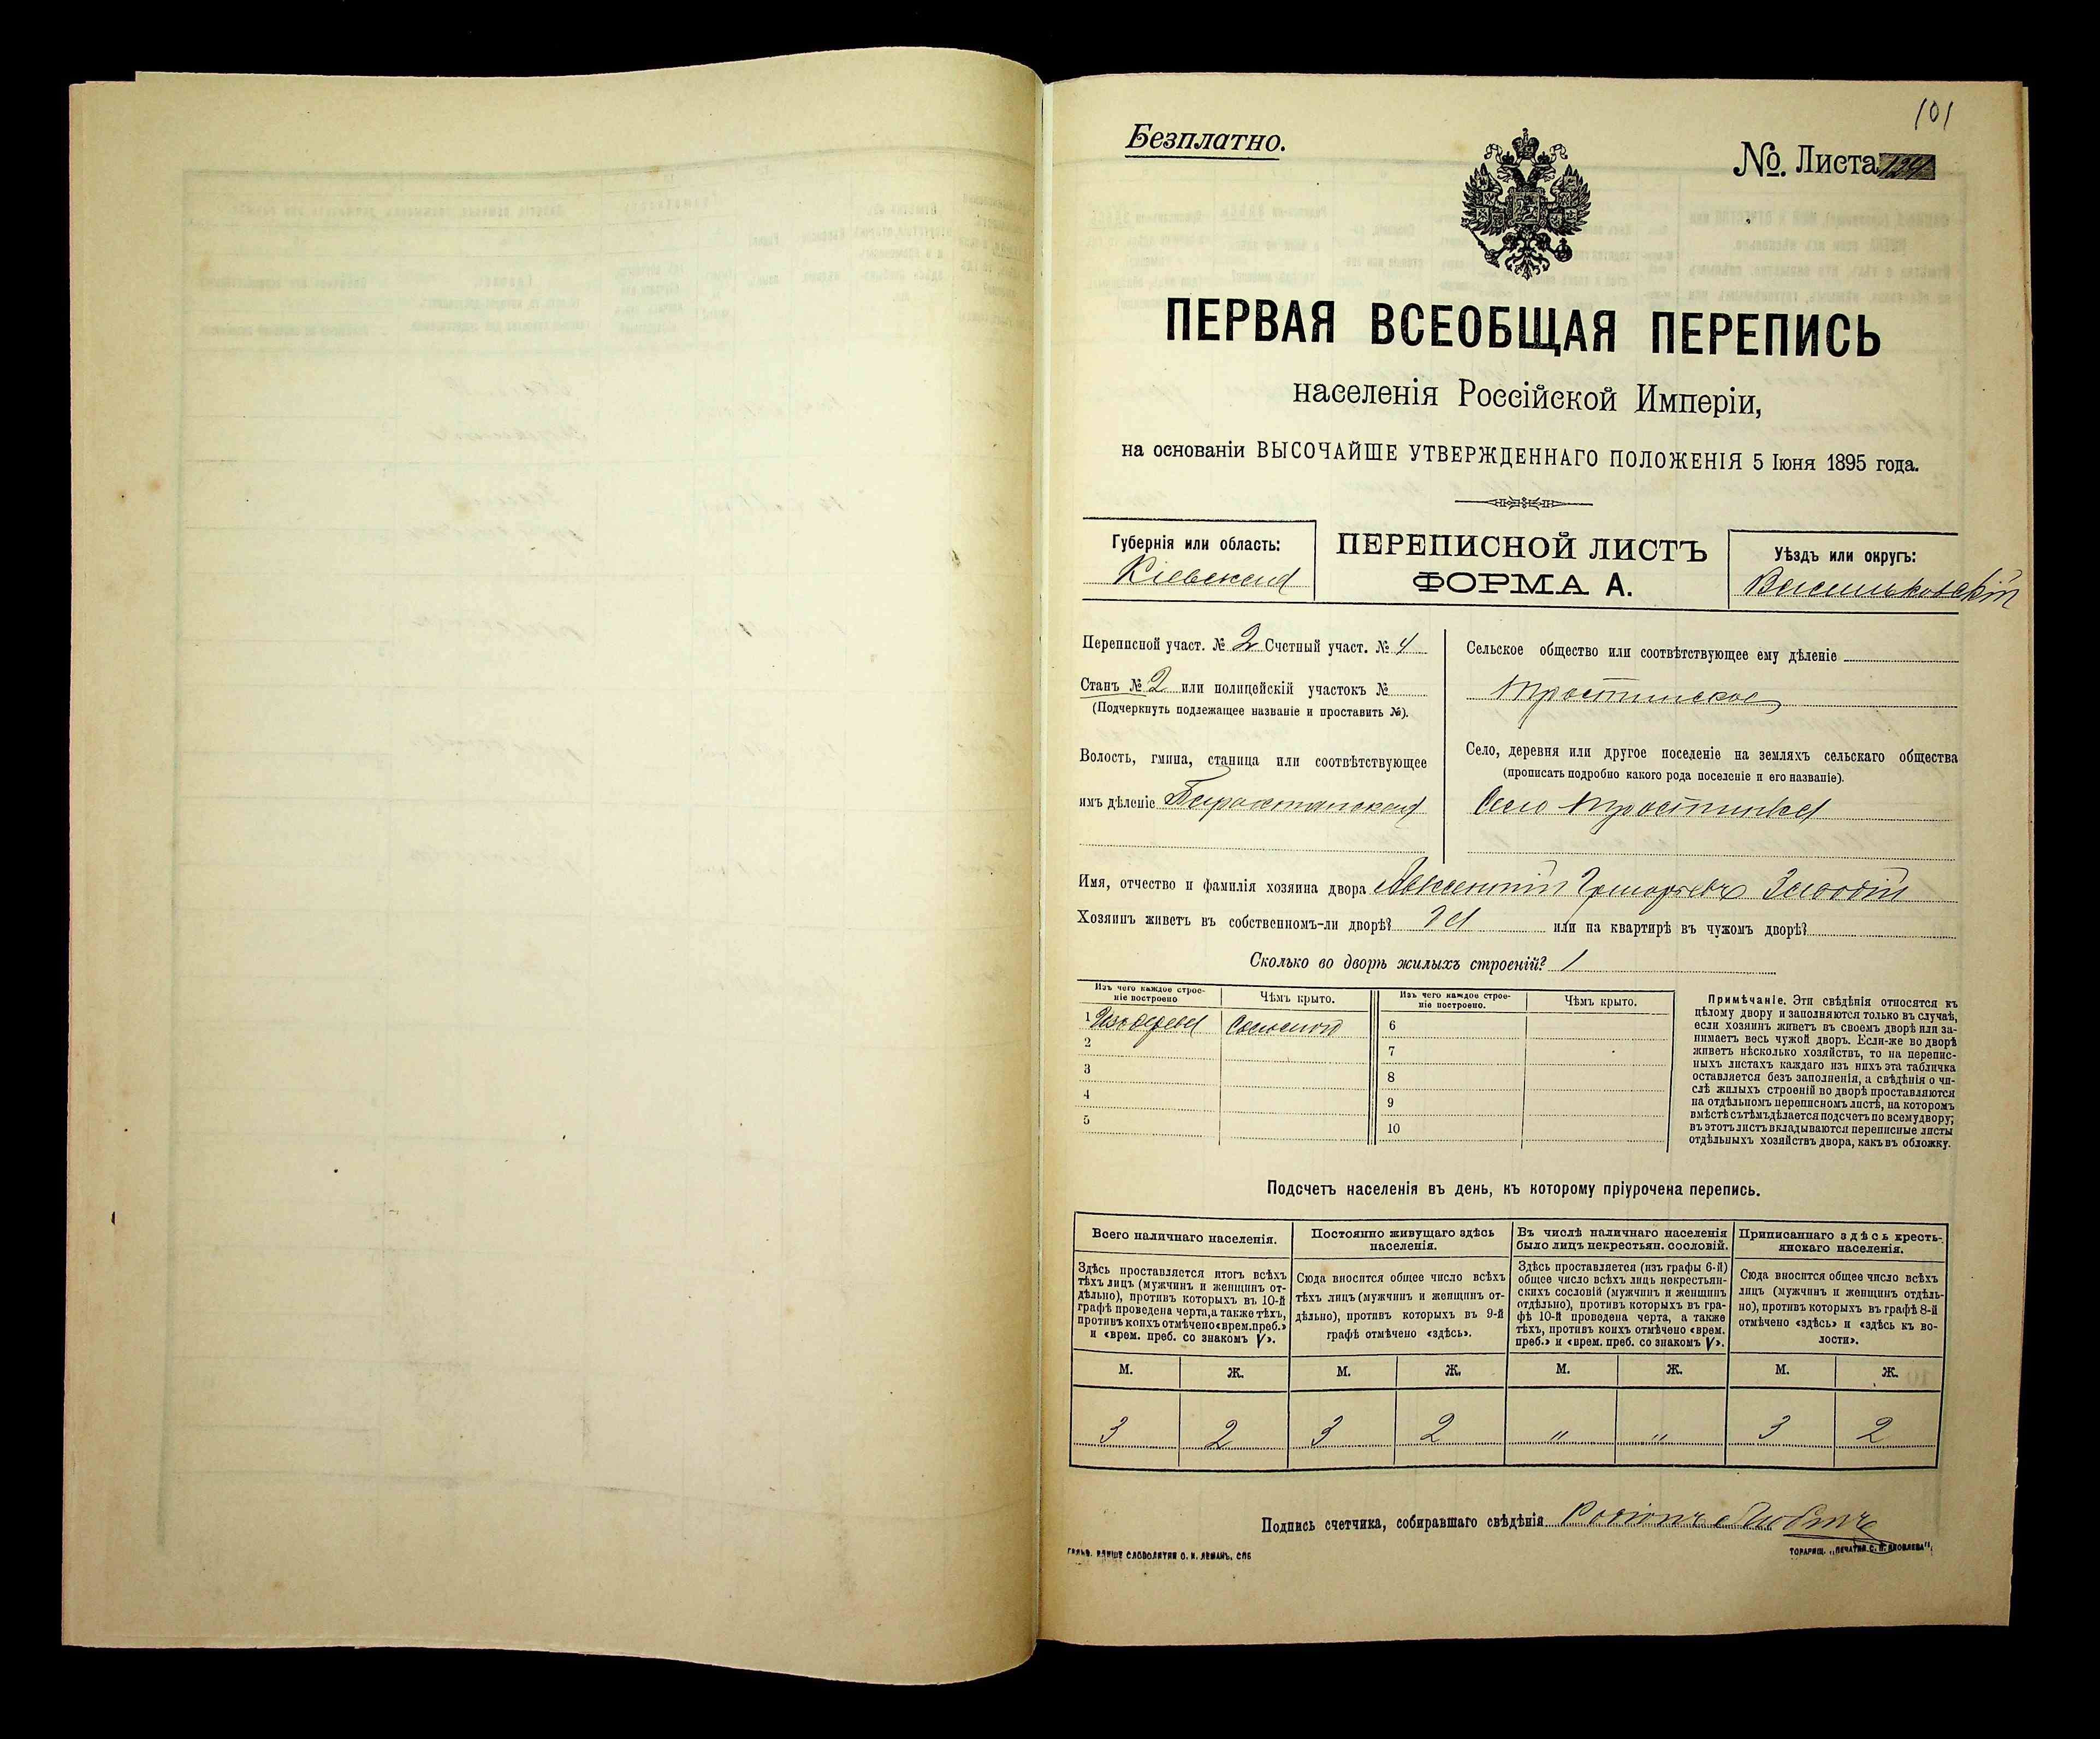 101
Безплатно.
№. Листа
ПЕРВАЯ ВСЕОБЩАЯ ПЕРЕПИСЬ
населенія Россійской Имперіи,
на основаніи ВЫСОЧАЙШЕ УТВЕРЖДЕННАГО ПОЛОЖЕНІЯ 5 Іюня 1895 года.
Губернія или область:
Кіевская
ПЕРЕПИСНОЙ ЛИСТЪ
ФОРМА А.
Уѣздъ или округъ:
Васильковскій
Переписной участ. № 2 Счетный участ. № 4
Станъ № 2 или полицейскій участокъ №
(Подчеркнуть подлежащее названіе и проставить №).
Волость, гмина, станица или соотвѣтствующее
имъ дѣленіе Барахтянская
Сельское общество или соотвѣтствующее ему дѣленіе
Тростинское
Село, деревня или другое поселеніе на земляхъ сельскаго общества
(прописать подробно какого рода поселеніе и его названіе).
Село Тростинка
Имя, отчество и фамилія хозяина двора Авксентій Григорьевъ
Хозяинъ живетъ въ собственномъ-ли дворѣ? Да или на квартирѣ въ чужомъ дворѣ?
Сколько во дворѣ жилыхъ строеній? 1
Изъ чего каждое строе-
ніе построено
Чѣмъ крыто.
Изъ чего каждое строе-
ніе построено.
Чѣмъ крыто.
1 Изъ дерева Соломою
2
3
4
5
6
7
8
9
10
Примѣчаніе. Эти свѣдѣнія относятся къ
цѣлому двору и заполняются только въ случаѣ,
если хозяинъ живетъ въ своемъ дворѣ или за-
нимаетъ весь чужой дворъ. Если-же во дворѣ
живетъ нѣсколько хозяйствъ, то на перепис-
ныхъ листахъ каждаго изъ нихъ эта табличка
оставляется безъ заполненія, а свѣдѣнія о чи-
слѣ жилыхъ строеній во дворѣ проставляются
на отдѣльномъ переписномъ листѣ, на которомъ
вмѣстѣ съ тѣмъ дѣлается подсчетъ по всему двору;
въ этотъ листъ вкладываются переписные листы
отдѣльныхъ хозяйствъ двора, какъ въ обложку.
Подсчетъ населенія въ день, къ которому пріурочена перепись.
Всего наличнаго населенія.
Постоянно живущаго здѣсь
населенія.
Въ числѣ наличнаго населенія
было лицъ некрестьян. сословій.
Приписаннаго здѣсь кресть-
янскаго населенія.
Здѣсь проставляется итогъ всѣхъ
тѣхъ лицъ (мужчинъ и женщинъ от-
дѣльно), противъ которыхъ въ 10-й
графѣ проведена черта, а также тѣхъ,
противъ коихъ отмѣчено «врем. преб.»
и «врем. преб. со знакомъ V».
Сюда вносится общее число всѣхъ
тѣхъ лицъ (мужчинъ и женщинъ от-
дѣльно), противъ которыхъ въ 9-й
графѣ отмѣчено «здѣсь».
Здѣсь проставляется (изъ графы 6-й)
общее число всѣхъ лицъ некрестьян-
скихъ сословій (мужчинъ и женщинъ
отдѣльно), противъ которыхъ въ гра-
фѣ 10-й проведена черта, а также
тѣхъ, противъ коихъ отмѣчено «врем.
преб.» и «врем. преб. со знакомъ V».
Сюда вносится общее число всѣхъ
лицъ (мужчинъ и женщинъ отдѣль-
но), противъ которыхъ въ графѣ 8-й
отмѣчено «здѣсь» и «здѣсь къ во-
лости».
М. Ж. М. Ж. М. Ж. М. Ж.
3 2 3 2 " " 3 2
Подпись счетчика, собиравшаго свѣдѣнія Родіонъ
СЛОВОЛИТНЯ О. И. ЛЕМАНЪ, СПБ
ТОВАРИЩ. „ПЕЧАТНЯ С. П. ЯКОВЛЕВА“.